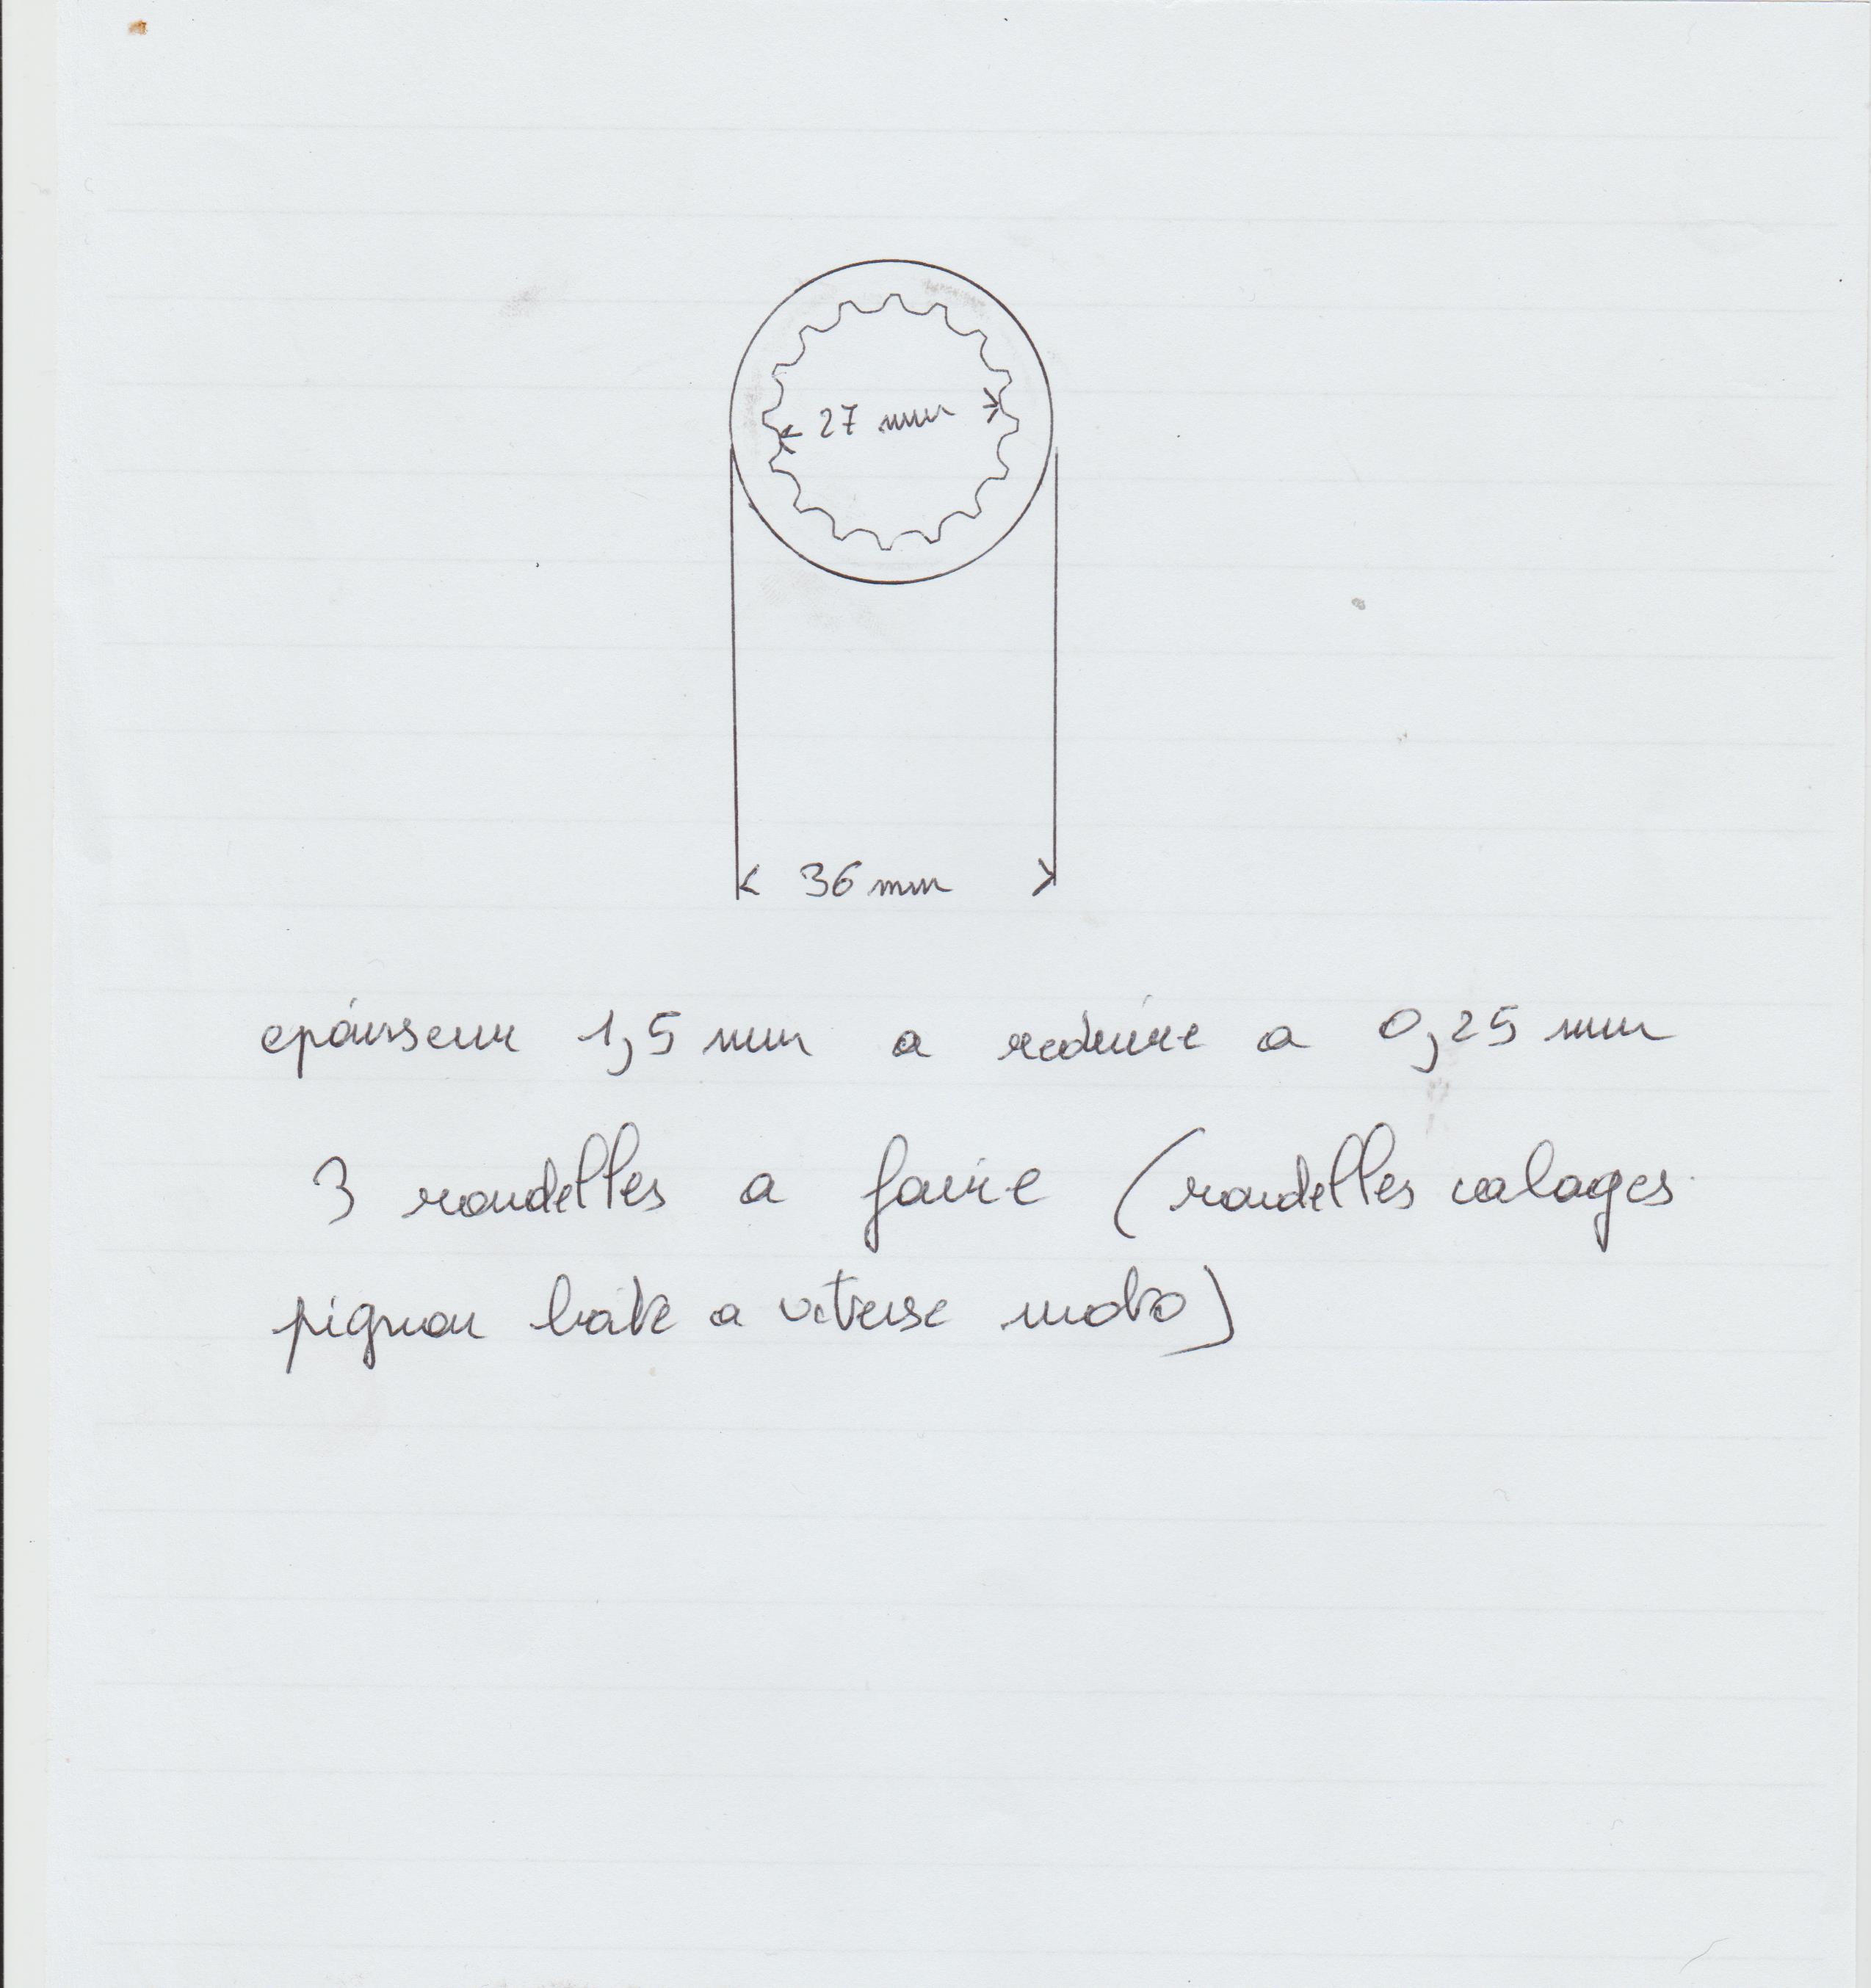 27 mm
36 mm
epaisseur 1,5 mm a reduire a 0,25 mm
3 rondelles a faire (rondelles calages
pignon boite a vitesse moto)